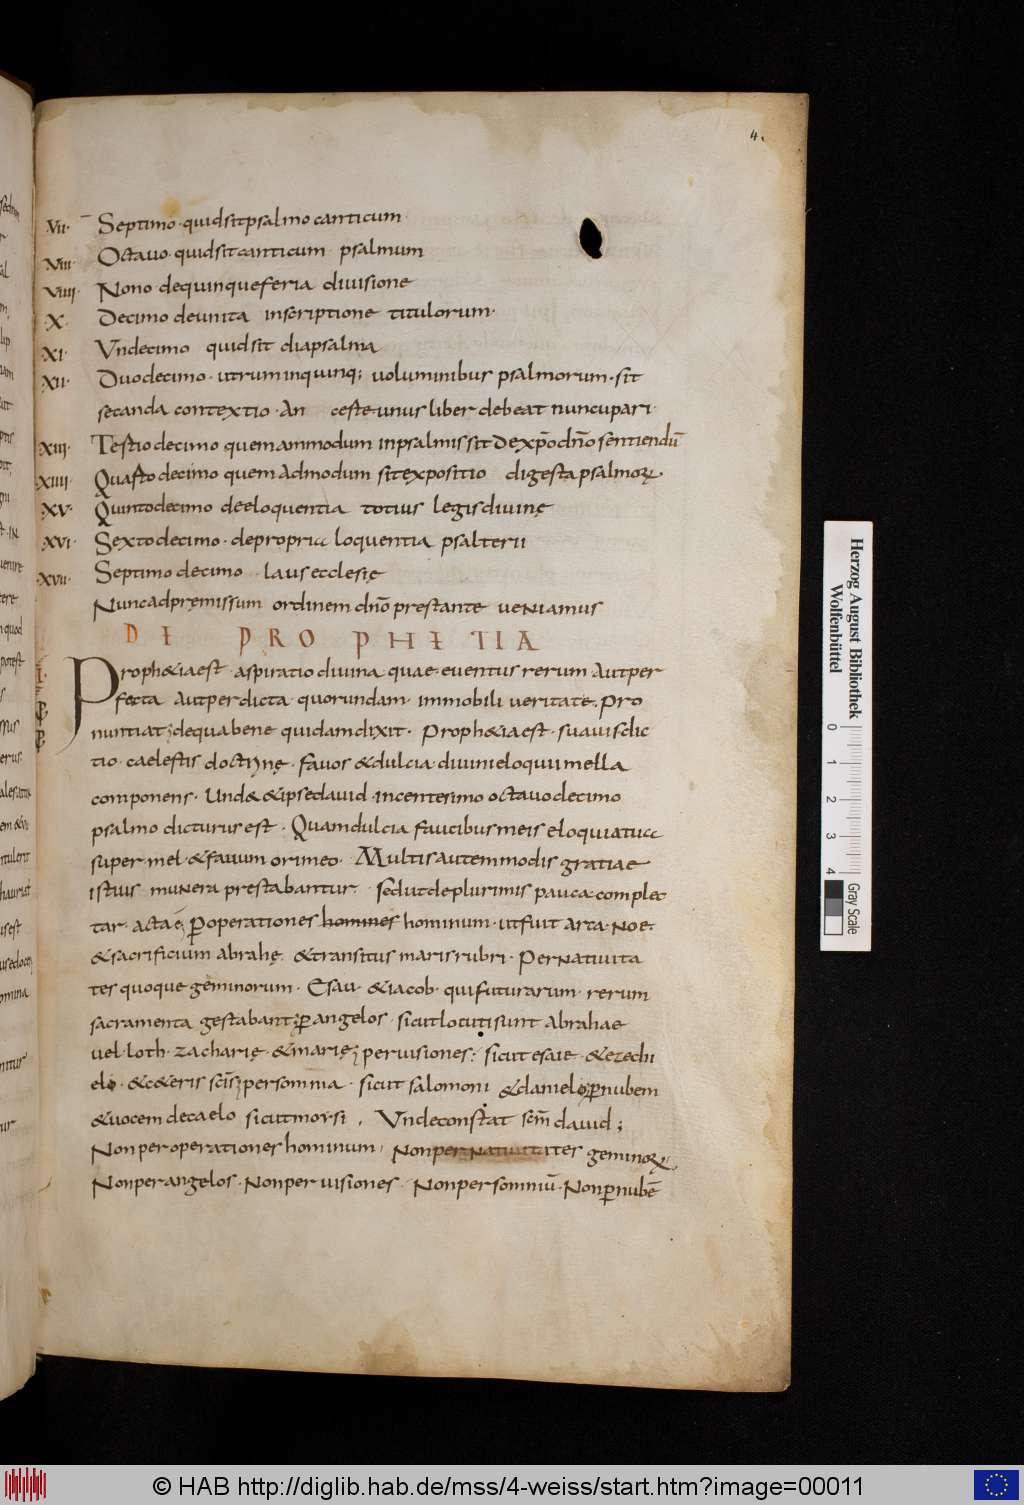 4.
·VII· Septimo· quid sit psalmo canticum
·VIII· Octauo· quid sit canticum psalmum
·VIIII· Nono· de quinque feria diuisione
·X· Decimo de unita inscriptione titulorum·
·XI· Vndecimo quid sit diapsalma
·XII· Duodecimo· utrum in quinq; uoluminibus psalmorum· sit
secanda contextio· An ceste unus liber debeat nuncupari·
·XIII· Tertio decimo quem ammodum in psalmis sit de xp̄o dn̄o sentiendū
·XIIII· Quarto decimo quem admodum sit expositio digesta psalmoꝝ
·XV· Quinto decimo de eloquentia totius legis diuinę
·XVI· Sexto decimo· de propria loquentia psalterii
·XVII· Septimo decimo· laus ecclesię
Nunc ad pręmissum ordinem dn̄o prestante ueniamus
DE PROPHETIA
I· Proph&ia est· aspiratio diuina· quae euentus rerum aut per
fecta aut per dicta· quorundam· immobili ueritate· pro
nuntiat; de qua bene quidam dixit· Proph&ia est· suauis dic
tio· caelestis doctrinę· fauos & dulcia· diuini eloquii mella
componens· Und& & ipse dauid· in centesimo octauo decimo
psalmo dicturus est· Quam dulcia faucibus meis eloquia tua
super mel· & fauum ori meo· Multis autem modis gratiae
istius munera prestabantur· sed ut de plurimis pauca· complec
tar· acta ē; ꝑ operationes homines hominum· ut fuit arca· noe·
& sacrificium abrahę· & transitus maris rubri· Per natiuita
tes quoque geminorum· Esau· & iacob· qui futurarum· rerum
sacramenta gestabant; ꝑ angelos· sicut locuti sunt abrahae
uel· loth· zacharię· & marię; per uisiones; sicut esaie· & ezechi
elo· & c&eris scīs; per somnia· sicut salomoni & danielo; ꝑ nubem
& uocem de caelo sicut moysi· Vnde constat sem̄ dauid;
Non per operationes hominum· Non per natiuitates geminoꝝ·
Non per angelos· Non per uisiones· Non per somniū· Non ꝑ nubē
Herzog August Bibliothek
Wolfenbüttel
0 1 2 3 4
Gray Scale
© HAB http://diglib.hab.de/mss/4-weiss/start.htm?image=00011